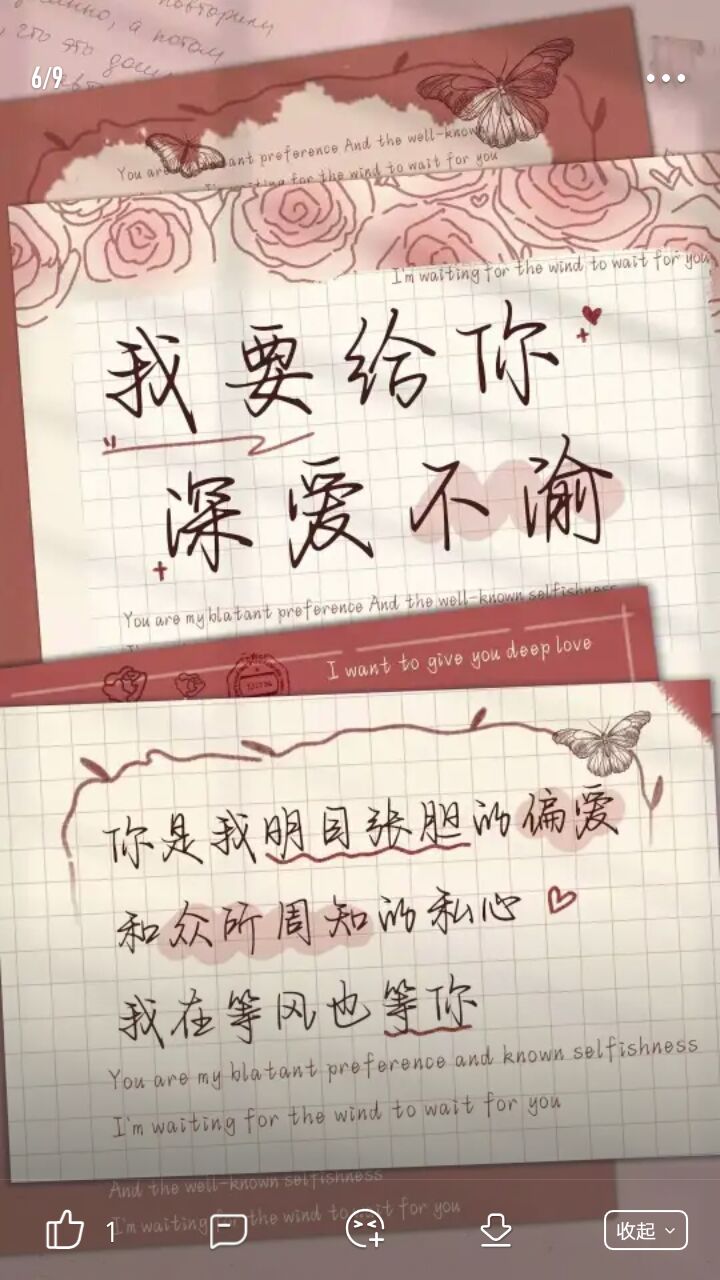 6/9
preference And the well-know
for the wind to wait for you
I'm waiting for the wind to wait for you
我要给你
深爱不渝
You are my blatant preference And the well-known selfishness
I want to give you deep love
你是我明目张胆的偏爱
和众所周知的私心
我在等风也等你
You are my blatant preference and known selfishness
I'm waiting for the wind to wait for you
And the well-known selfishness
I'm waiting for the wind to wait for you
1
收起